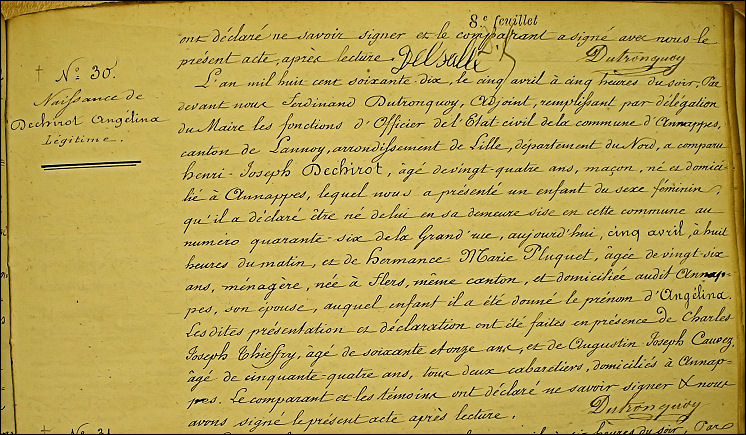 8.e feuillet
ont déclaré ne savoir signer et le comparant a signé avec nous le
présent acte, après lecture. Delsalle Dutronquoy
† N.o 30.
Naissance de
Dechirot Angélina
Légitime.
L'an mil huit cent soixante-dix, le cinq avril à cinq heures du soir, Par
devant nous Ferdinand Dutronquoy, Adjoint, remplissant par délégation
du Maire les fonctions d'Officier de l'Etat civil de la commune d'Annappes,
canton de Lannoy, arrondissement de Lille, département du Nord, a comparu
henri-Joseph Dechirot, âgé de vingt-quatre ans, maçon, né et domici-
lié à Annappes, lequel nous a présenté un enfant du sexe féminin,
qu'il a déclaré être né de lui en sa demeure sise en cette commune au
numéro quarante-six de la Grand'rue, aujourd'hui, cinq avril, à huit
heures du matin, et de hermance Marie Pluquet, âgée de vingt-six
ans, ménagère, née à Flers, même canton, et domiciliée audit Annap-
pes, son épouse, auquel enfant il a été donné le prénom d'Angélina.
Les dites présentation et déclaration ont été faites en présence de Charles
Joseph Thieffry, âgé de soixante et onze ans, et de Augustin Joseph Cauvez,
âgé de cinquante-quatre ans, tous deux cabaretiers, domiciliés à Annap-
pes. Le comparant et les témoins ont déclaré ne savoir signer & nous
avons signé le présent acte après lecture. Dutronquoy
† N.o 31.
heures du soir, Par